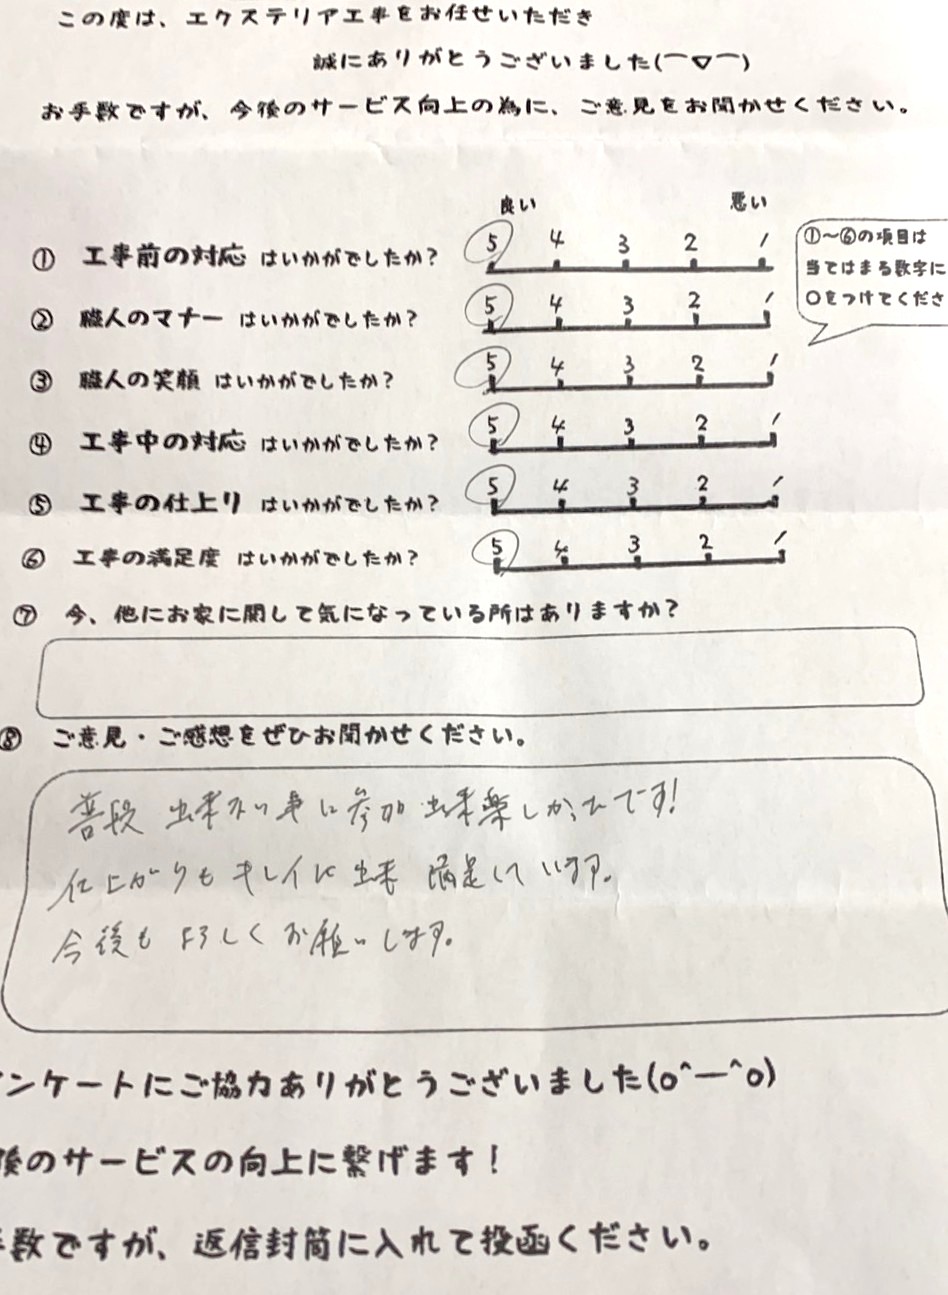 この度は、エクステリア工事をお任せいただき
誠にありがとうございました(⌒▽⌒)
お手数ですが、今後のサービス向上の為に、ご意見をお聞かせください。
良い 悪い
① 工事前の対応 はいかがでしたか? 5 4 3 2 1
② 職人のマナー はいかがでしたか? 5 4 3 2 1
③ 職人の笑顔 はいかがでしたか? 5 4 3 2 1
④ 工事中の対応 はいかがでしたか? 5 4 3 2 1
⑤ 工事の仕上り はいかがでしたか? 5 4 3 2 1
⑥ 工事の満足度 はいかがでしたか? 5 4 3 2 1
①~⑥の項目は
当てはまる数字に
○をつけてくださ
⑦ 今、他にお家に関して気になっている所はありますか?
⑧ ご意見・ご感想をぜひお聞かせください。
普段 出来ない事に参加 出来楽しかったです!
仕上がりもキレイに出来 満足しています。
今後も よろしくお願いします。
ンケートにご協力ありがとうございました(o^ー^o)
後のサービスの向上に繋げます!
手数ですが、返信封筒に入れて投函ください。